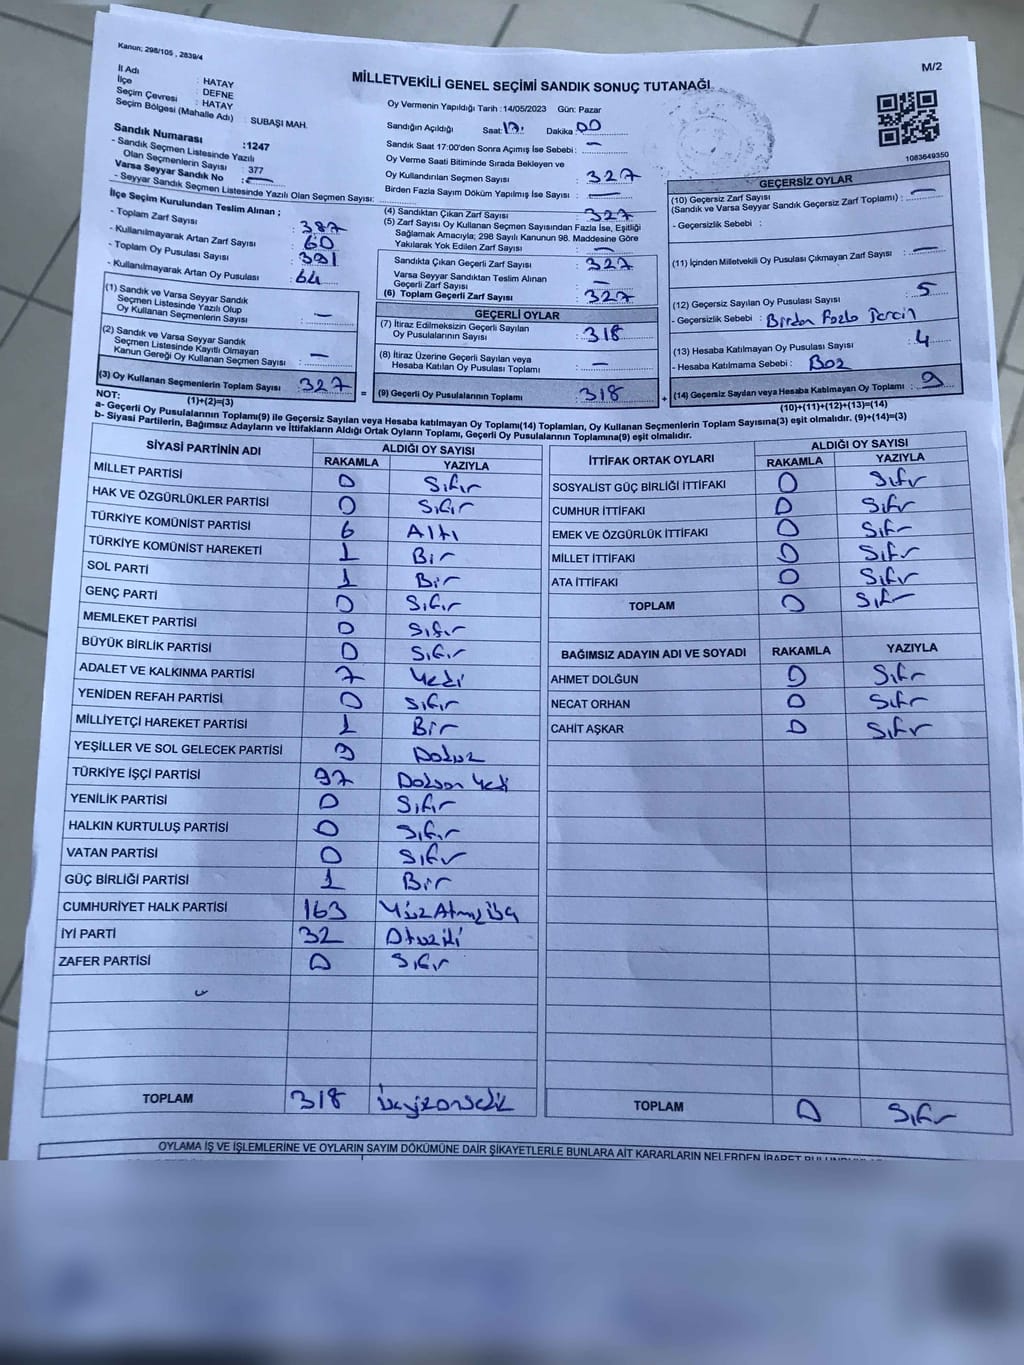 Kanun; 298/105 , 2839/4
M/2
MİLLETVEKİLİ GENEL SEÇİMİ SANDIK SONUÇ TUTANAĞI
İl Adı : HATAY
İlçe : DEFNE
Seçim Çevresi : HATAY
Seçim Bölgesi (Mahalle Adı) : SUBAŞI MAH.
Sandık Numarası :1247
- Sandık Seçmen Listesinde Yazılı
Olan Seçmenlerin Sayısı : 377
Varsa Seyyar Sandık No : —
- Seyyar Sandık Seçmen Listesinde Yazılı Olan Seçmen Sayısı:
İlçe Seçim Kurulundan Teslim Alınan ;
- Toplam Zarf Sayısı : 387
- Kullanılmayarak Artan Zarf Sayısı : 60
- Toplam Oy Pusulası Sayısı : 391
- Kullanılmayarak Artan Oy Pusulası : 64
(1) Sandık ve Varsa Seyyar Sandık
Seçmen Listesinde Yazılı Olup
Oy Kullanan Seçmenlerin Sayısı : —
(2) Sandık ve Varsa Seyyar Sandık
Seçmen Listesinde Kayıtlı Olmayan
Kanun Gereği Oy Kullanan Seçmen Sayısı : —
(3) Oy Kullanan Seçmenlerin Toplam Sayısı : 327
(1)+(2)=(3)
Oy Vermenin Yapıldığı Tarih : 14/05/2023 Gün: Pazar
Sandığın Açıldığı Saat: 17: Dakika: 00
Sandık Saat 17:00'den Sonra Açımış İse Sebebi : —
Oy Verme Saati Bitiminde Sırada Bekleyen ve
Oy Kullandırılan Seçmen Sayısı : 327
Birden Fazla Sayım Döküm Yapılmış İse Sayısı : —
(4) Sandıktan Çıkan Zarf Sayısı : 327
(5) Zarf Sayısı Oy Kullanan Seçmen Sayısından Fazla İse, Eşitliği
Sağlamak Amacıyla; 298 Sayılı Kanunun 98. Maddesine Göre
Yakılarak Yok Edilen Zarf Sayısı : —
Sandıkta Çıkan Geçerli Zarf Sayısı : 327
Varsa Seyyar Sandıktan Teslim Alınan
Geçerli Zarf Sayısı : —
(6) Toplam Geçerli Zarf Sayısı : 327
GEÇERLİ OYLAR
(7) İtiraz Edilmeksizin Geçerli Sayılan
Oy Pusulalarının Sayısı : 318
(8) İtiraz Üzerine Geçerli Sayılan veya
Hesaba Katılan Oy Pusulası Toplamı : —
= (9) Geçerli Oy Pusulalarının Toplamı : 318
1083649350
GEÇERSİZ OYLAR
(10) Geçersiz Zarf Sayısı
(Sandık ve Varsa Seyyar Sandık Geçersiz Zarf Toplamı) : —
- Geçersizlik Sebebi :
(11) İçinden Milletvekili Oy Pusulası Çıkmayan Zarf Sayısı : —
(12) Geçersiz Sayılan Oy Pusulası Sayısı : 5
- Geçersizlik Sebebi : Birden Fazla Tercih
(13) Hesaba Katılmayan Oy Pusulası Sayısı : 4
- Hesaba Katılmama Sebebi : Boş
+ (14) Geçersiz Sayılan veya Hesaba Katılmayan Oy Toplamı : 9
(10)+(11)+(12)+(13)=(14)
NOT:
a- Geçerli Oy Pusulalarının Toplamı(9) ile Geçersiz Sayılan veya Hesaba katılmayan Oy Toplamı(14) Toplamları, Oy Kullanan Seçmenlerin Toplam Sayısına(3) eşit olmalıdır. (9)+(14)=(3)
b- Siyasi Partilerin, Bağımsız Adayların ve İttifakların Aldığı Ortak Oyların Toplamı, Geçerli Oy Pusulalarının Toplamına(9) eşit olmalıdır.
SİYASİ PARTİNİN ADI ALDIĞI OY SAYISI
RAKAMLA YAZIYLA
MİLLET PARTİSİ 0 Sıfır
HAK VE ÖZGÜRLÜKLER PARTİSİ 0 Sıfır
TÜRKİYE KOMÜNİST PARTİSİ 6 Altı
TÜRKİYE KOMÜNİST HAREKETİ 1 Bir
SOL PARTİ 1 Bir
GENÇ PARTİ 0 Sıfır
MEMLEKET PARTİSİ 0 Sıfır
BÜYÜK BİRLİK PARTİSİ 0 Sıfır
ADALET VE KALKINMA PARTİSİ 7 Yedi
YENİDEN REFAH PARTİSİ 0 Sıfır
MİLLİYETÇİ HAREKET PARTİSİ 1 Bir
YEŞİLLER VE SOL GELECEK PARTİSİ 9 Dokuz
TÜRKİYE İŞÇİ PARTİSİ 97 Doksan Yedi
YENİLİK PARTİSİ 0 Sıfır
HALKIN KURTULUŞ PARTİSİ 0 Sıfır
VATAN PARTİSİ 0 Sıfır
GÜÇ BİRLİĞİ PARTİSİ 1 Bir
CUMHURİYET HALK PARTİSİ 163 Yüz Atmış Üç
İYİ PARTİ 32 Otuz iki
ZAFER PARTİSİ 0 Sıfır
TOPLAM 318 üçyüzonsekiz
İTTİFAK ORTAK OYLARI ALDIĞI OY SAYISI
RAKAMLA YAZIYLA
SOSYALİST GÜÇ BİRLİĞİ İTTİFAKI 0 Sıfır
CUMHUR İTTİFAKI 0 Sıfır
EMEK VE ÖZGÜRLÜK İTTİFAKI 0 Sıfır
MİLLET İTTİFAKI 0 Sıfır
ATA İTTİFAKI 0 Sıfır
TOPLAM 0 Sıfır
BAĞIMSIZ ADAYIN ADI VE SOYADI RAKAMLA YAZIYLA
AHMET DOLĞUN 0 Sıfır
NECAT ORHAN 0 Sıfır
CAHİT AŞKAR 0 Sıfır
TOPLAM 0 Sıfır
OYLAMA İŞ VE İŞLEMLERİNE VE OYLARIN SAYIM DÖKÜMÜNE DAİR ŞİKAYETLERLE BUNLARA AİT KARARLARIN NELERDEN İBARET